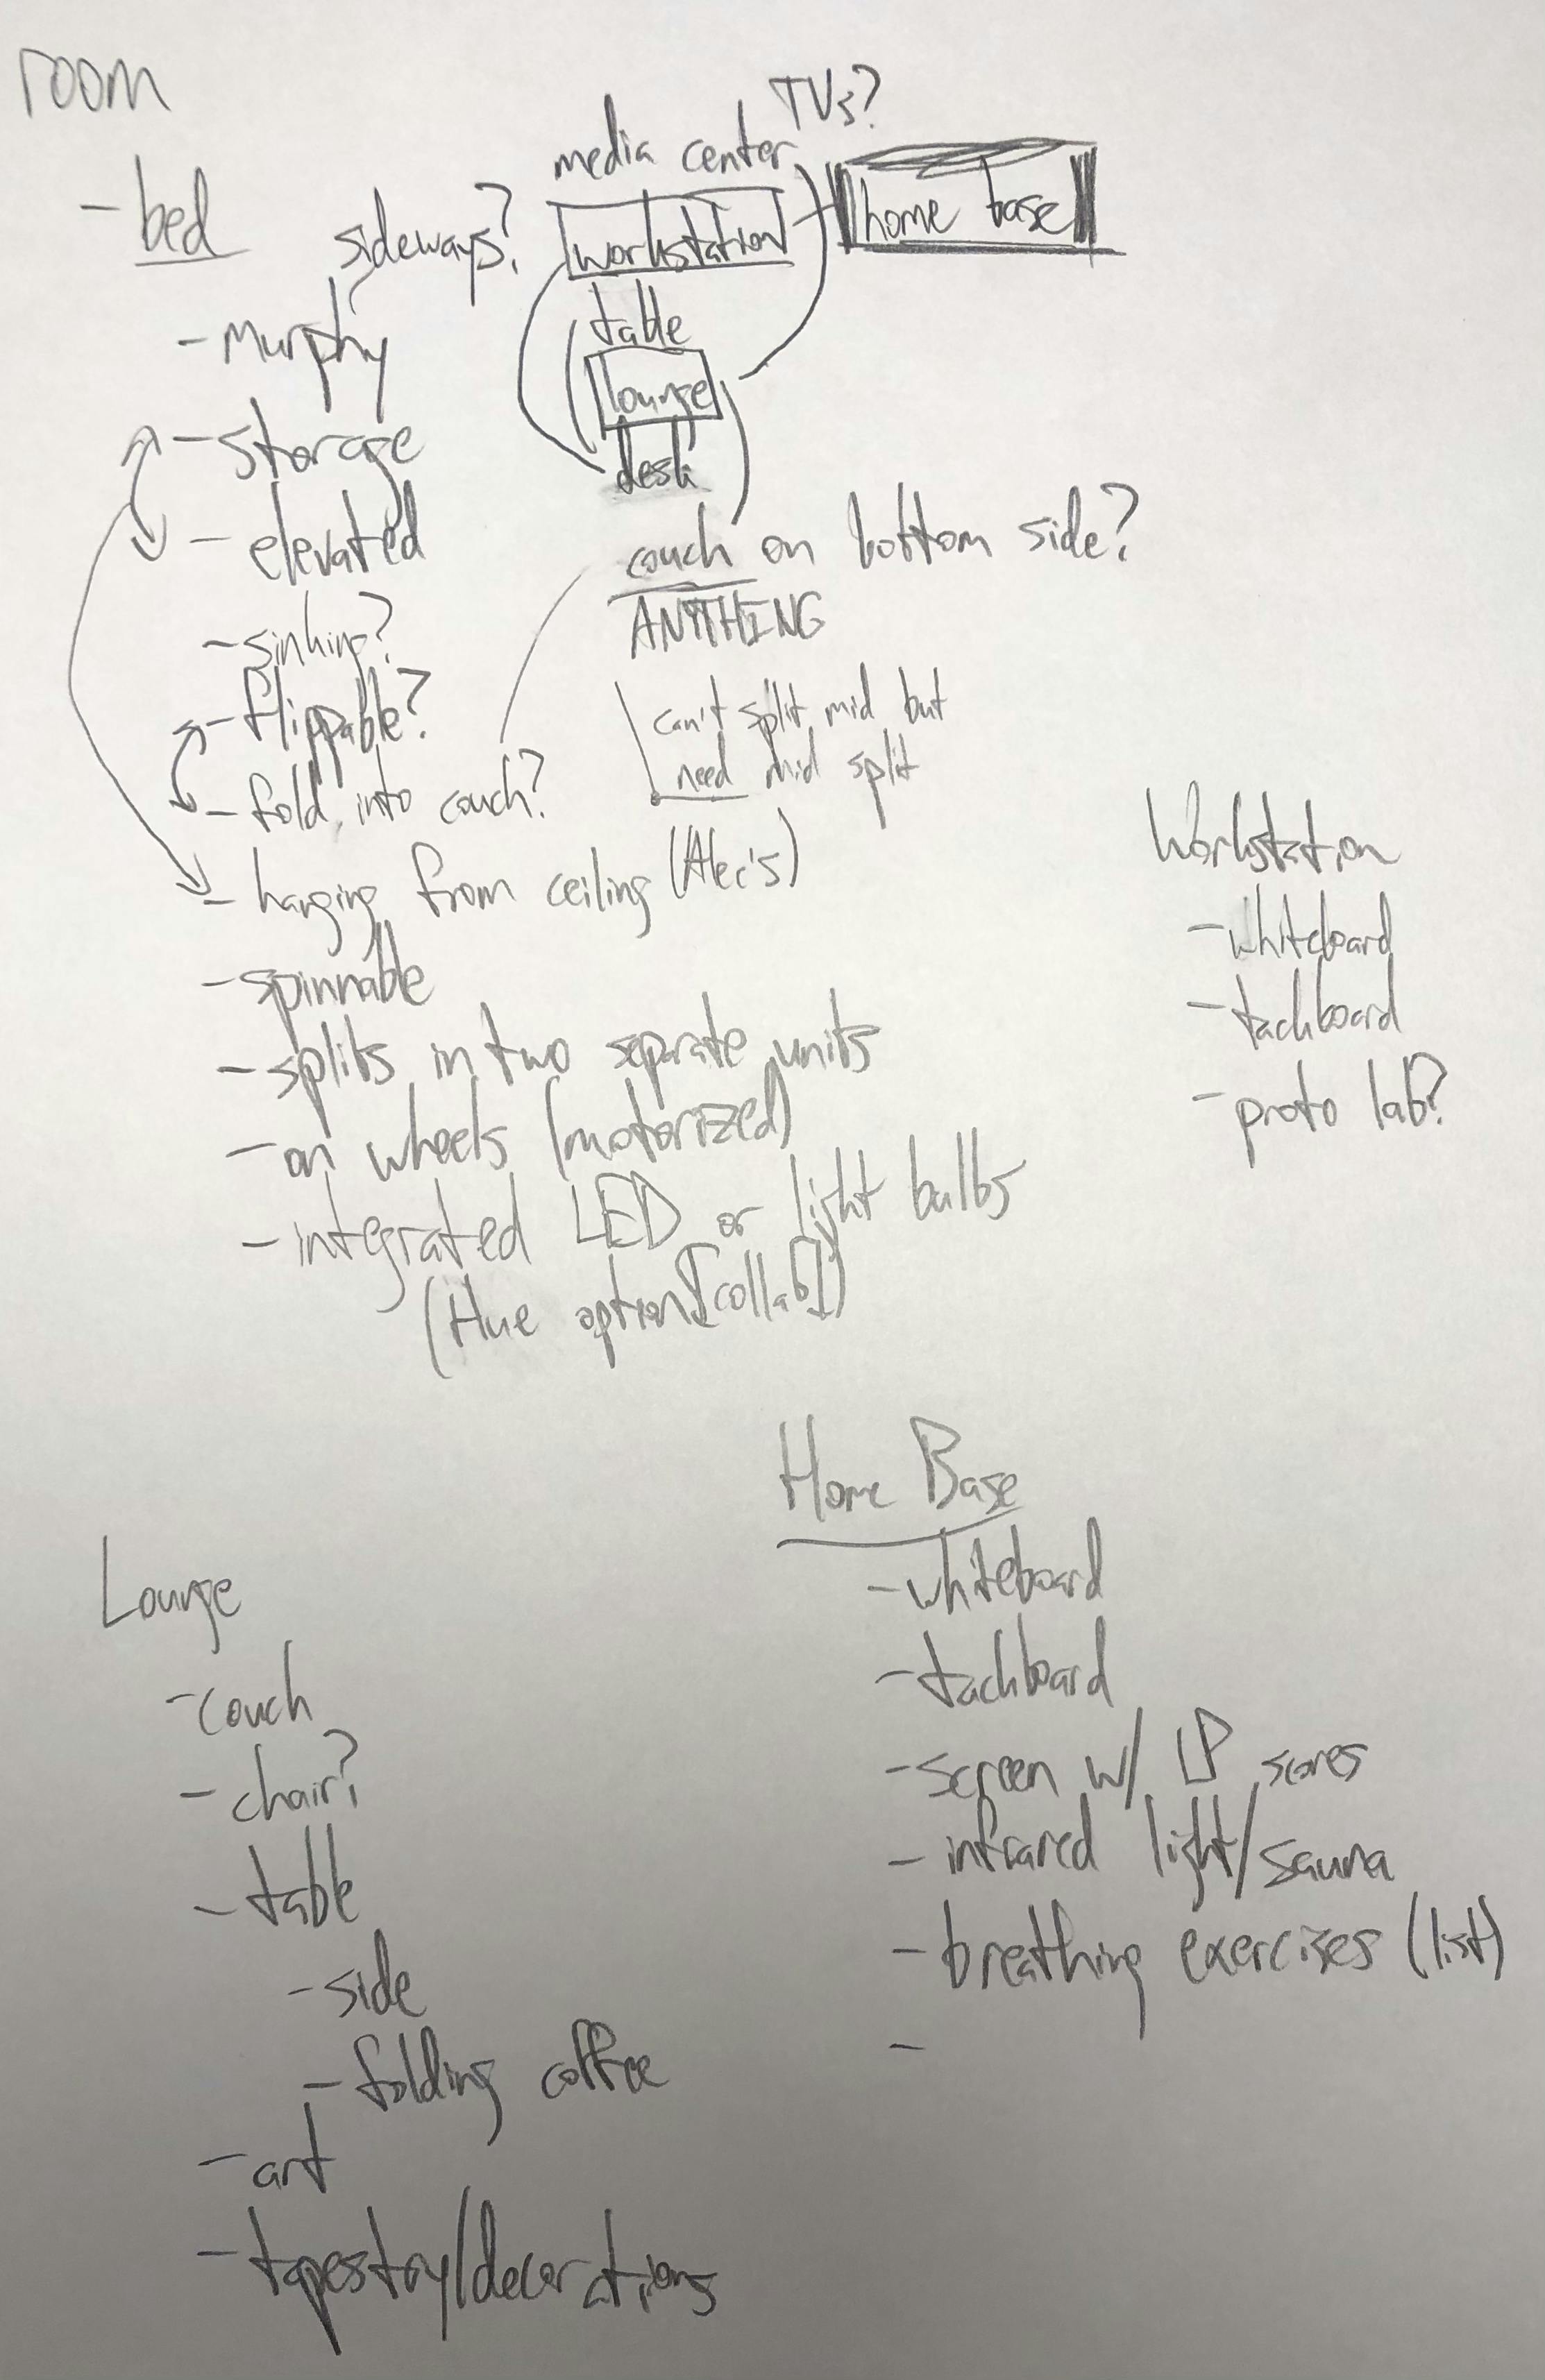 room
TVs?
media center
- bed
sideways?
workstation
home base
- Murphy
table
lounge
- storage
desk
- elevated
couch on bottom side?
ANYTHING
- sinking?
- flippable?
can't split mid but
need mid split
- fold into couch?
- hanging from ceiling (Alec's)
- spinnable
- splits in two separate units
- on wheels (motorized)
- integrated LED or light bulbs
(Hue option [collab])
Workstation
- whiteboard
- tackboard
- proto lab?
Home Base
- whiteboard
- tackboard
- screen w/ LP scores
- infrared light/sauna
- breathing exercises (list)
-
Lounge
- couch
- chair?
- table
- side
- folding coffee
- art
- tapestry/decorations